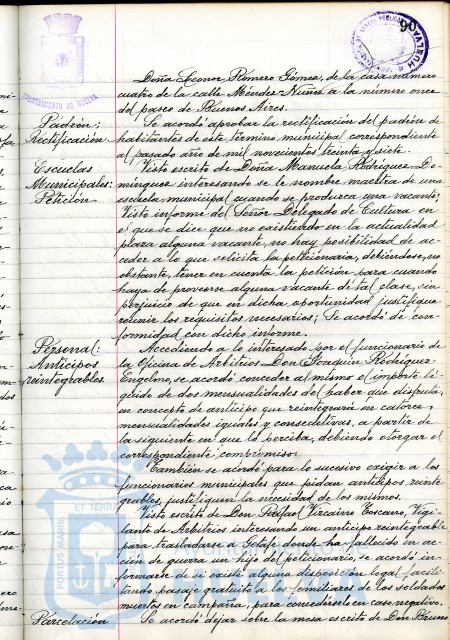 90
AYUNTAMIENTO DE HUELVA
Doña Leonor Romero Gómez, de la casa número
cuatro de la calle Méndez Núñez a la número once
del paseo de Buenos Aires.
Padrón:
Rectificación.
Se acordó aprobar la rectificación del padrón de
habitantes de este término municipal correspondiente
al pasado año de mil novecientos treinta y siete.
Escuelas
Municipales:
Petición.
Visto escrito de Doña Manuela Rodríguez Do-
mínguez interesando se le nombre maestra de una
escuela municipal cuando se produzca una vacante;
Visto informe del Señor Delegado de Cultura en
el que se dice que no existiendo en la actualidad
plaza alguna vacante, no hay posibilidad de ac-
ceder a lo que solicita la peticionaria, debiéndose, no
obstante, tener en cuenta la petición para cuando
haya de proveerse alguna vacante de tal clase, sin
perjuicio de que en dicha oportunidad justifique
reunir los requisitos necesarios; Se acordó de con-
formidad con dicho informe.
Personal:
Anticipos
reintegrables.
Accediendo a lo interesado por el funcionario de
la Oficina de Arbitrios Don Joaquín Rodríguez
Engelmo, se acordó conceder al mismo el importe lí-
quido de dos mensualidades del haber que disfruta,
en concepto de anticipo que reintegrará en catorce
mensualidades iguales y consecutivas, a partir de
la siguiente en que lo perciba, debiendo otorgar el
correspondiente compromiso.
También se acordó para lo sucesivo exigir a los
funcionarios municipales que pidan anticipos reinte-
grables, justifiquen la necesidad de los mismos.
Visto escrito de Don Rafael Vizcaino Toscano, Vigi-
lante de Arbitrios interesando un anticipo reintegrable
para trasladarse a Getafe donde ha fallecido en ac-
ción de guerra un hijo del peticionario, se acordó in-
formarse de si existe alguna disposición legal facili-
tando pasaje gratuito a los familiares de los soldados
muertos en campaña, para concedérselo en caso negativo.
Parcelación
Se acordó dejar sobre la mesa escrito de Don Bruno
PORTUS MARIS ET TERRAE